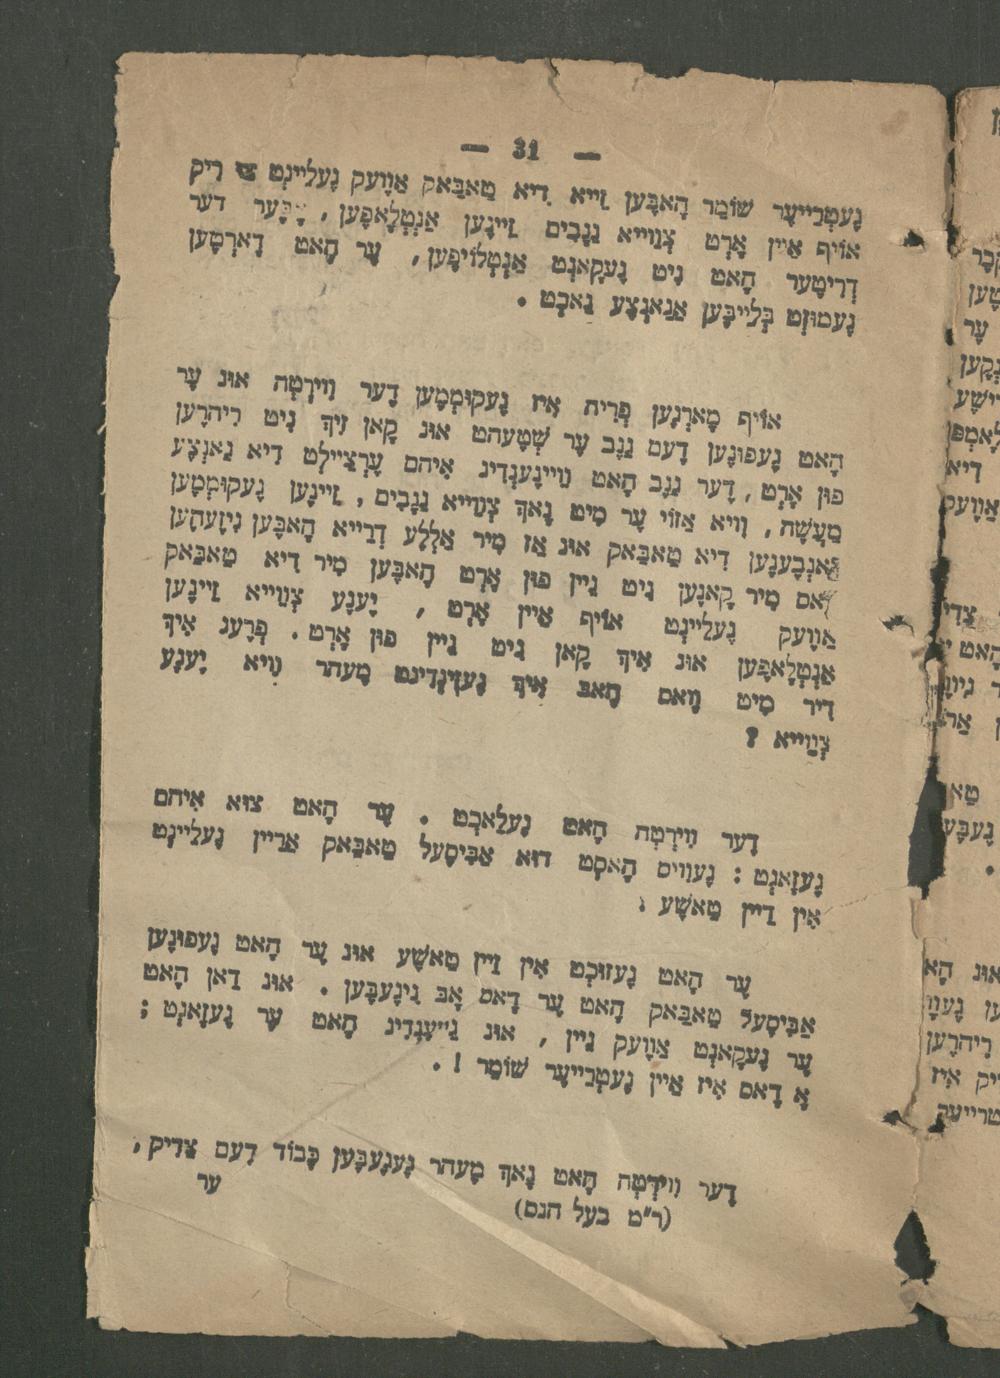 — 31 —
גֶעטְרַייעֶר שׁוֹמֵר הָאבֶּען זַייא דִיא טַאבַּאק אַוֶועק גֶעלֵיינְט צו רִיק
אוֹיף אֵיין אָרְט צְוַוייא גַנָבִים זַיינֶען אַנְטְלָאפֶען, אָבֶּער דער
דְרִיטֶער הָאט נִיט גֶעקָאנְט אַנְטְלוֹיפֶען, עֶר הָאט דָארְטֶען
גֶעמוּזְט בְּלַייבֶּען אַגַאנְצֶע נַאכְט .
אוֹיף מָארְגֶען פְרִיה אִיז גֶעקוּמֶען דֶער וִוירְטָה אוּנ עֶר
הָאט גֶעפוּנֶען דֶעם גַנָב עֶר שְׁטֶעהט אוּנ קָאן זִיךְ נִיט רִיהרֶען
פוּן אָרְט, דֶער גַנָב הָאט וֵויינֶענְדִיג אִיהם עֶרְצֵיילְט דִיא גַאנְצֶע
מַעֲשֶׂה, וִויא אַזוֹי עֶר מִיט נָאךְ צְוַוייא גַנָבִים, זַיינֶען גֶעקוּמֶען
גַאנְבֶענֶען דִיא טַאבַּאק אוּנ אַז מִיר אַלְלֶע דְרַייא הָאבֶּען גִיזֶעהֶען
דָאס מִיר קָאנֶען נִיט גֵיין פוּן אָרְט הָאבֶּען מִיר דִיא טַאבַּאק
אַוֶועק גֶעלֵיינְט אוֹיף אֵיין אָרְט, יֶענֶע צְוַוייא זַיינֶען
אַנְטְלָאפֶען אוּנ אִיךְ קָאן נִיט גֵיין פוּן אָרְט. פְרֶעג אִיךְ
דִיר מִיט וָואס הָאב אִיךְ גֶעזִינְדִיגט מֶעהר וִויא יֶענֶע
צְוַוייא ?
דֶער וִוירְטָה הָאט גֶעלַאכְט . עֶר הָאט צוּא אִיהם
גֶעזָאגְט : גֶעוִויס הָאסְט דוּא אַבִּיסֶעל טַאבַּאק אַרַיין גֶעלֵיינְט
אִין דַיין טַאשֶׁע .
עֶר הָאט גֶעזוּכְט אִין זַיין טַאשֶׁע אוּנ עֶר הָאט גֶעפוּנֶען
אַבִּיסֶעל טַאבַּאק הָאט עֶר דָאס אָבּ גִיגֶעבֶּען . אוּנ דַאן הָאט
עֶר גֶעקָאנְט אַוֶועק גֵיין, אוּנ גֵייעֶנְדִיג הָאט עֶר גֶעזָאגְט ;
אָ דָאס אִיז אֵיין גֶעטְרַייעֶר שׁוֹמֵר ! .
דֶער וִוירְטָה הָאט נָאךְ מֶעהר גֶעגֶעבֶּען כָּבוֹד דֶעם צדיק,
ער
(ר״מ בעל הנס)